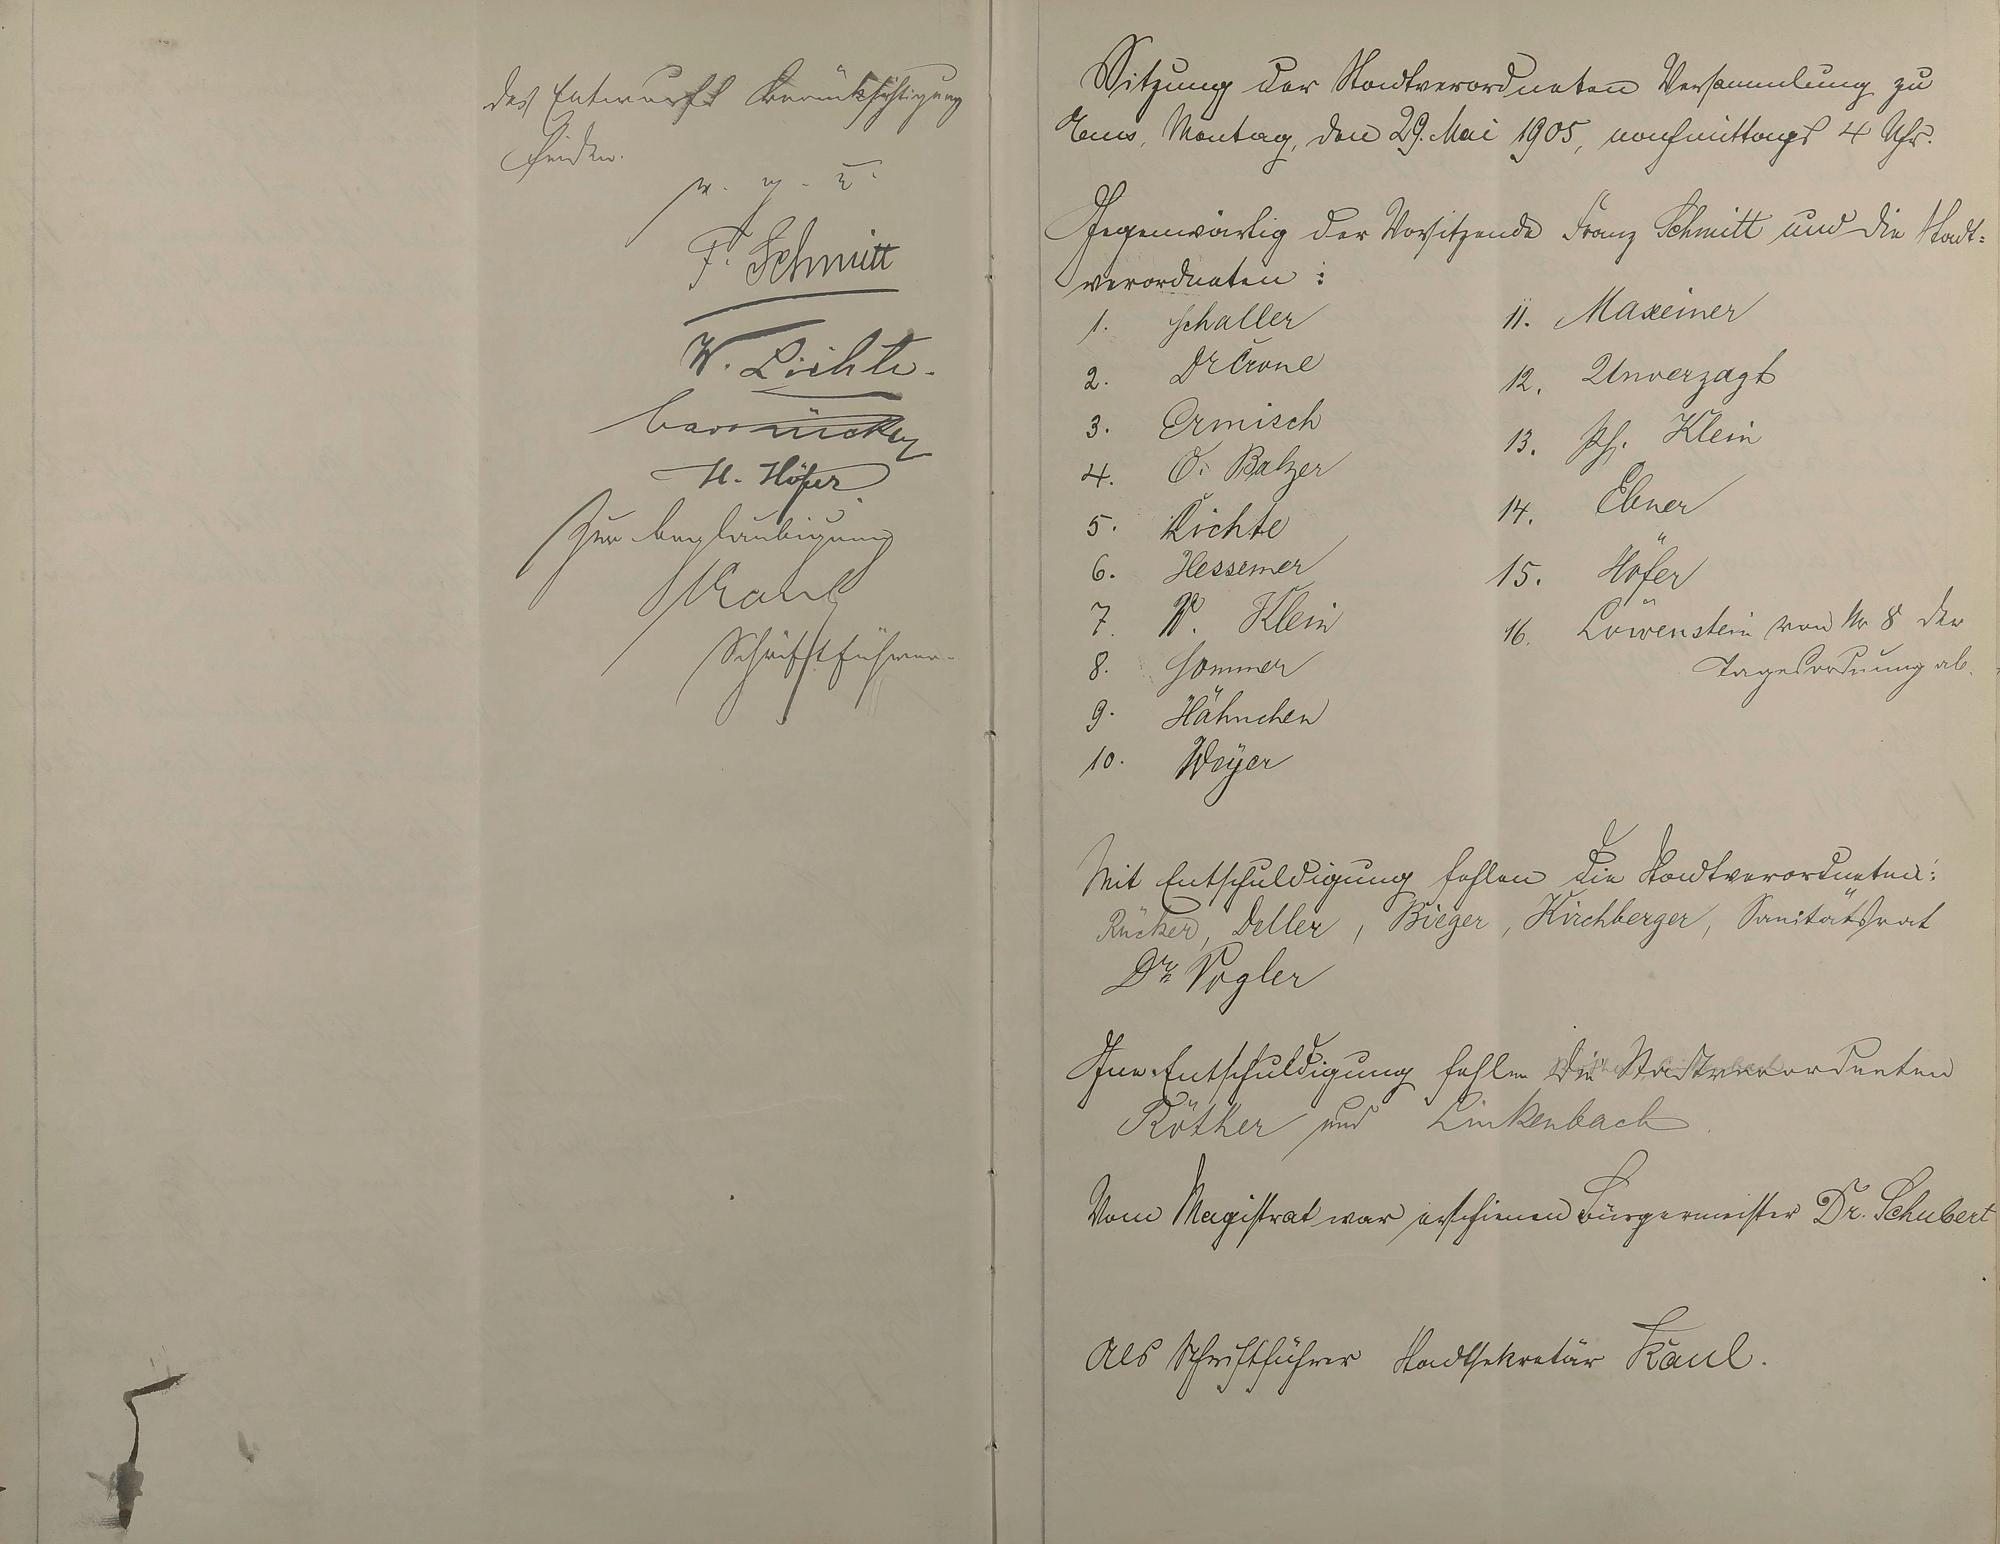 des Entwurfs Berücksichtigung
finden.
v. g. u.
F. Schmitt
W. Lichte.
H. Höfer
Zur Beglaubigung
Kaul
Schriftführer.
Sitzung der Stadtverordneten Versammlung zu
Ems, Montag, den 29. Mai 1905, nachmittags 4 Uhr.
Gegenwärtig der Vorsitzende Franz Schmitt und die Stadt=
verordneten :
1. Schaller
2. Dr Crone
3. Ermisch
4. O. Balzer
5. Lichte
6. Hessemer
7. W. Klein
8. Sommer
9. Hähnchen
10. Weyer
11. Maxeiner
12. Unverzagt
13. Ph. Klein
14. Ebner
15. Höfer
16. Löwenstein von No 8 der
Tagesordnung ab.
Mit Entschuldigung fehlen die Stadtverordneten:
Rücker, Deller, Bieger, Kirchberger, Sanitätsrat
Dr. Vogler
Ohne Entschuldigung fehlen die Stadtverordneten
Röther und Linkenbach.
Vom Magistrat war erschienen Bürgermeister Dr. Schubert
Als Schriftführer Stadtsekretär Kaul.